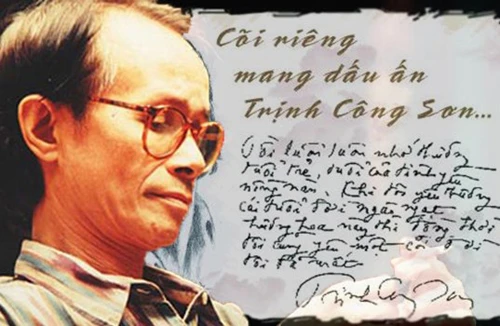 Cõi riêng
mang dấu ấn
Trịnh Công Sơn...
Tôi luôn luôn nhớ thương
tuổi trẻ, tuổi của tình yêu
nồng nàn. Khi tôi yêu thương
cái tuổi đời ngan ngát
hương hoa này thì đồng thời
tôi cũng yêu một cõi
tôi đã mất
Trịnh Công Sơn